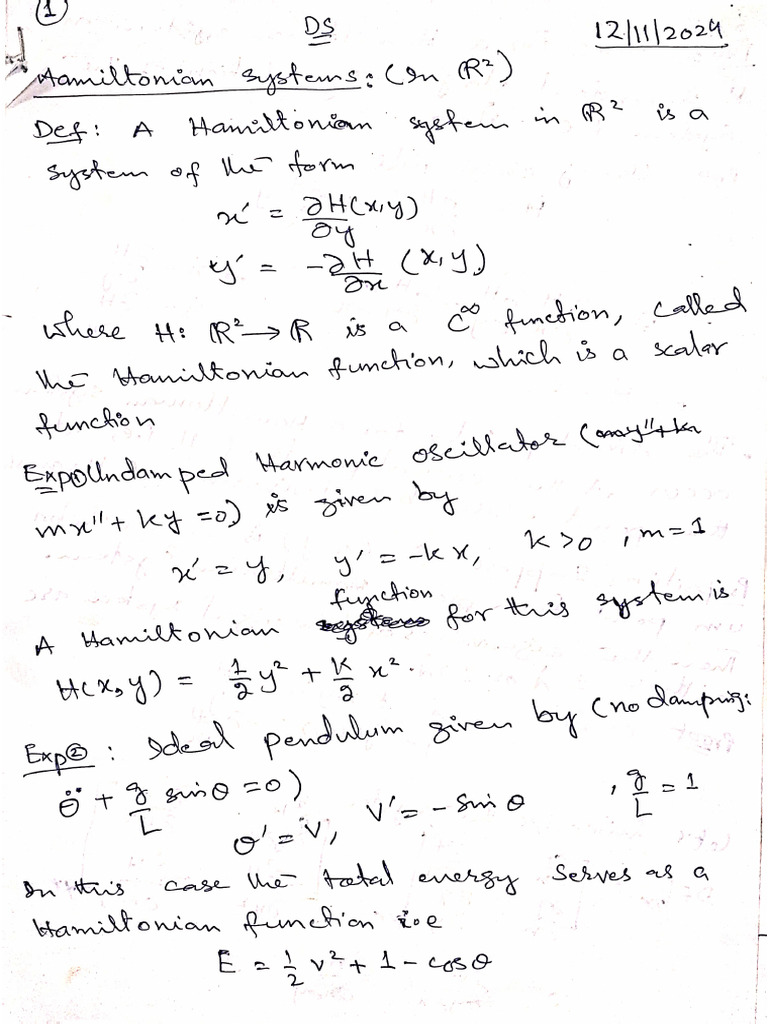 ①
DS
12/11/2024
Hamiltonian systems: (In ℝ²)
Def: A Hamiltonian system in ℝ² is a
system of the form
x' = ∂H(x,y)/∂y
y' = -∂H/∂x (x,y)
where H: ℝ² → ℝ is a C^∞ function, called
the Hamiltonian function, which is a scalar
function
Exp① Undamped Harmonic oscillator (
mx'' + ky = 0) is given by
x' = y, y' = -kx, k>0, m=1
function
A Hamiltonian for this system is
H(x,y) = 1/2 y² + k/2 x².
Exp②: Ideal pendulum given by (no damping:
θ̈ + g/L sinθ = 0)
θ' = v, v' = -sinθ, g/L = 1
In this case the total energy serves as a
Hamiltonian function i.e
E = 1/2 v² + 1 - cosθ